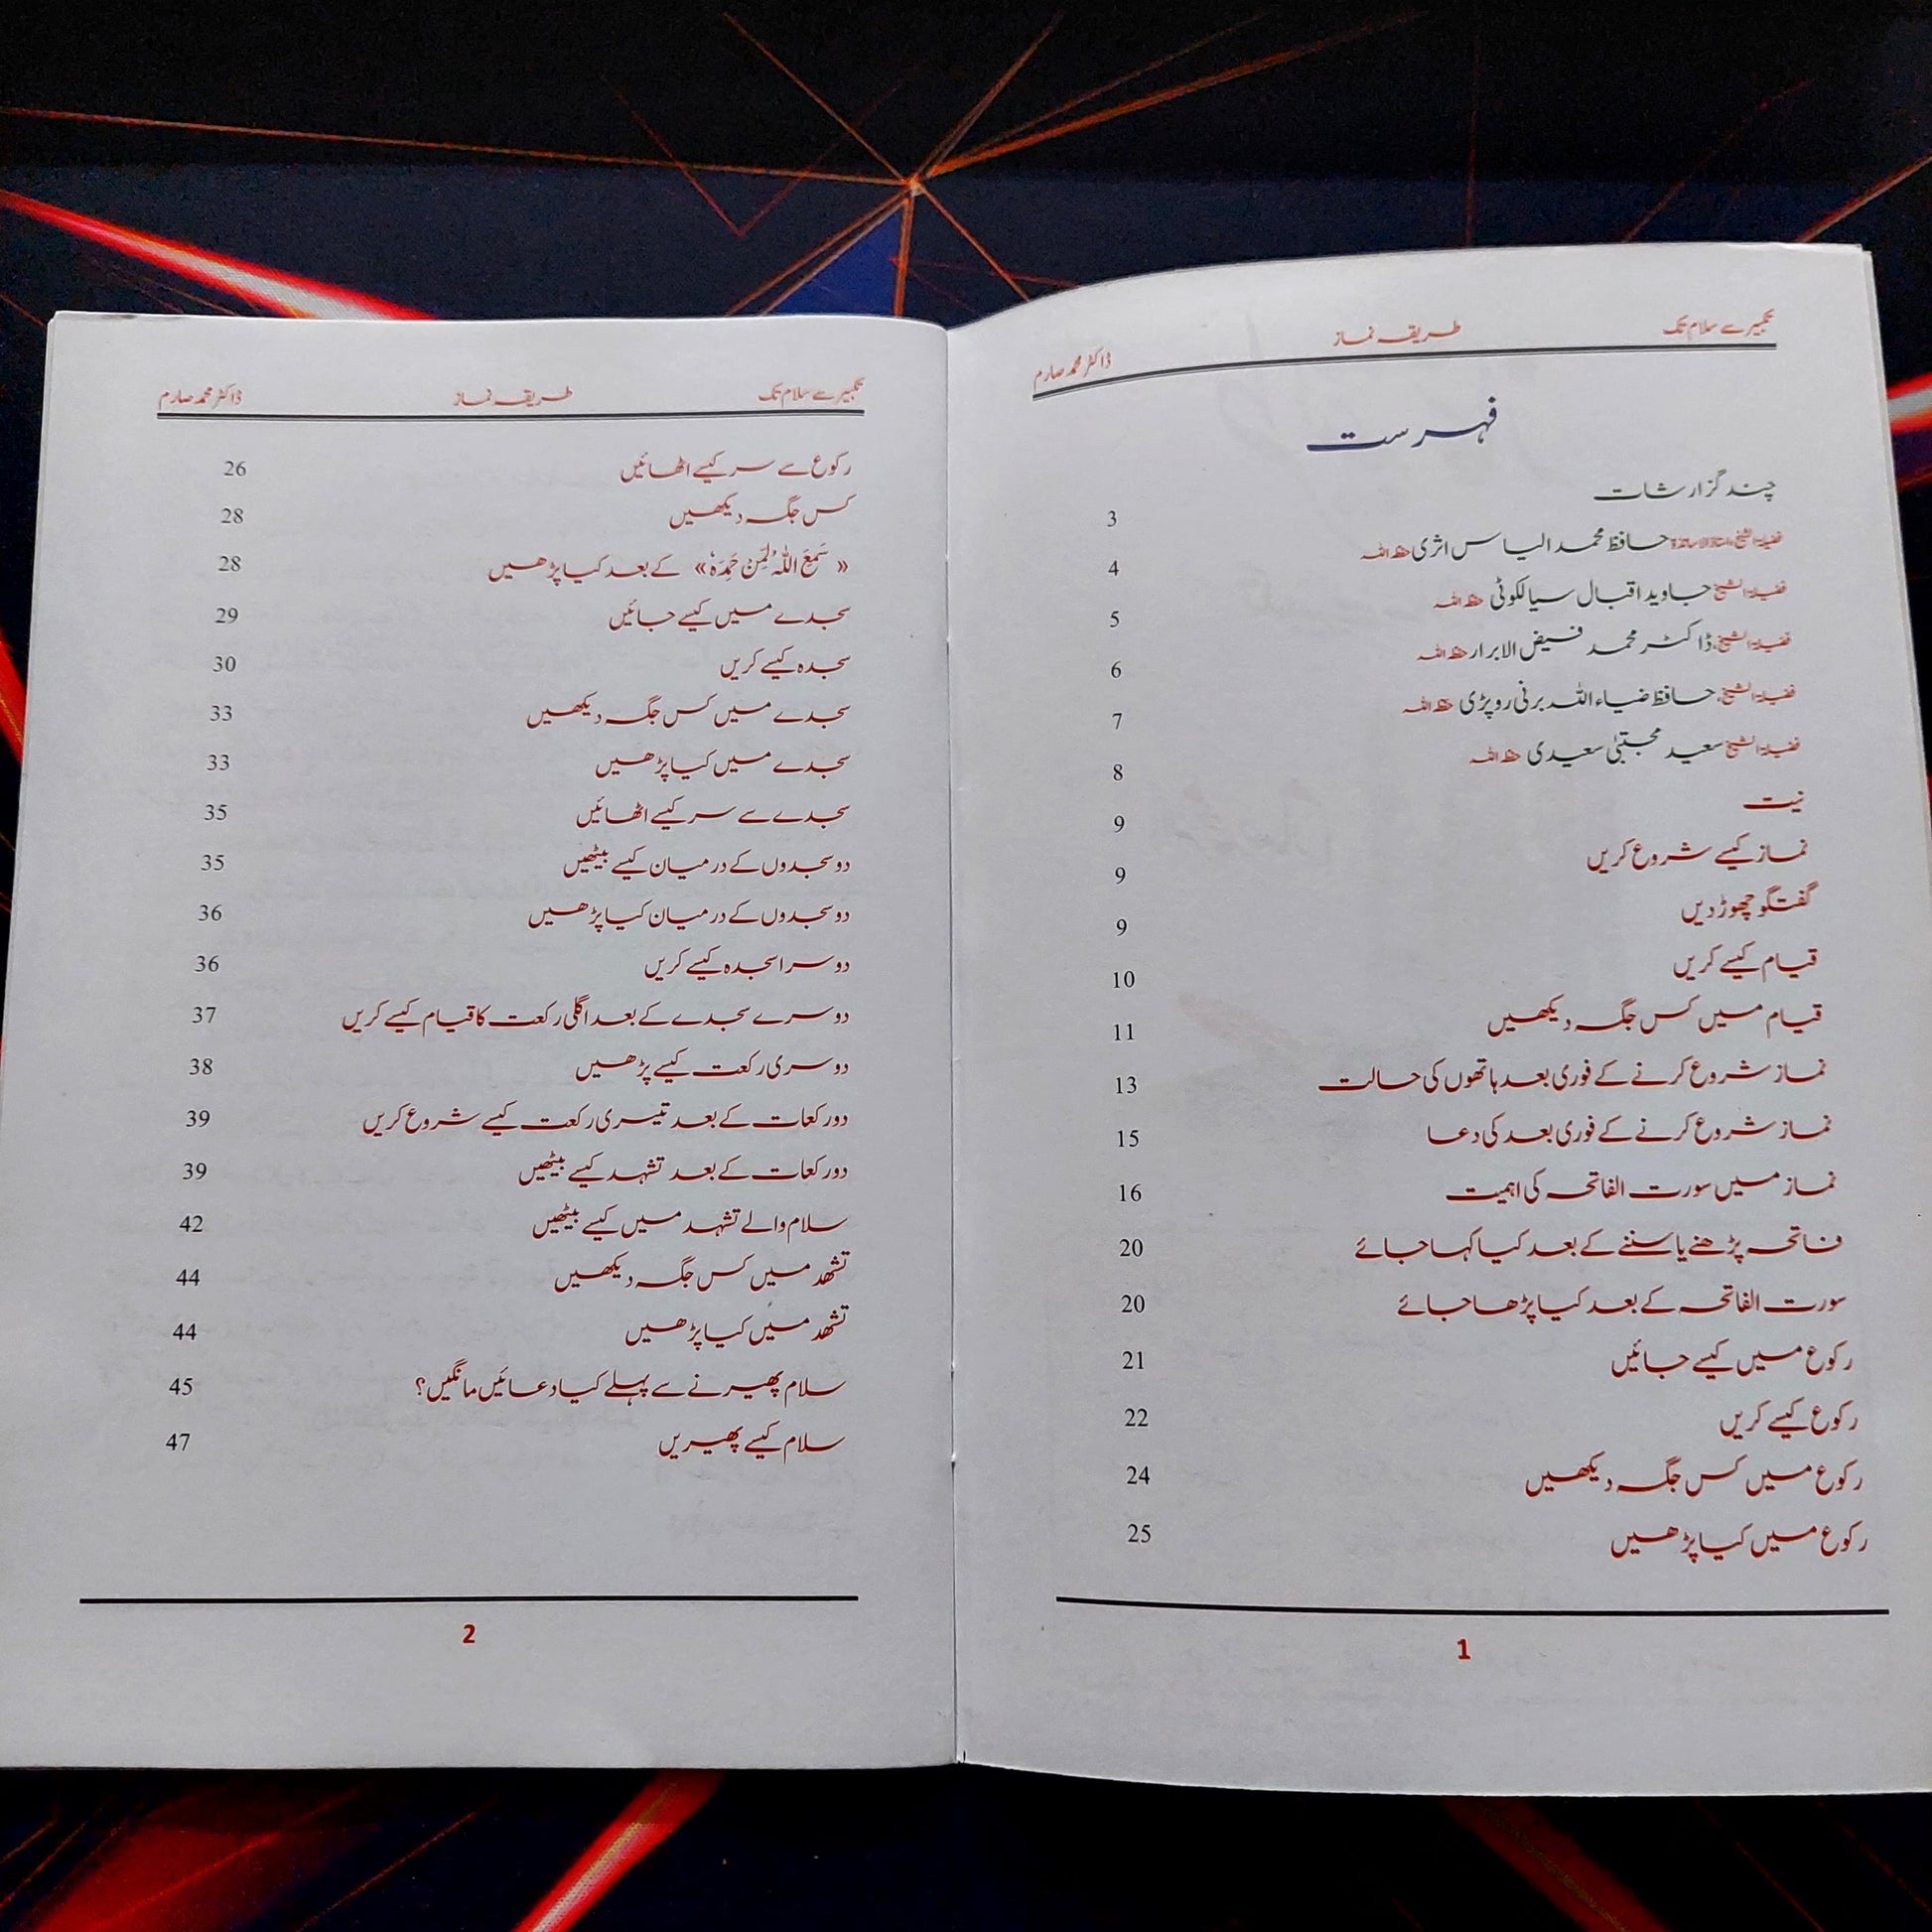 تکبیر سے سلام تک طریقہ نماز ڈاکٹر محمد صارم
فہرست
چند گزارشات 3
فضیلۃ الشیخ، استاذ الاساتذہ حافظ محمد الیاس اثری حفظہ اللہ 4
فضیلۃ الشیخ جاوید اقبال سیالکوٹی حفظہ اللہ 5
فضیلۃ الشیخ، ڈاکٹر محمد فیض الابرار حفظہ اللہ 6
فضیلۃ الشیخ، حافظ ضیاء اللہ برنی روپڑی حفظہ اللہ 7
فضیلۃ الشیخ سعید مجتبیٰ سعیدی حفظہ اللہ 8
نیت 9
نماز کیسے شروع کریں 9
گفتگو چھوڑ دیں 9
قیام کیسے کریں 10
قیام میں کس جگہ دیکھیں 11
نماز شروع کرنے کے فوری بعد ہاتھوں کی حالت 13
نماز شروع کرنے کے فوری بعد کی دعا 15
نماز میں سورت الفاتحہ کی اہمیت 16
فاتحہ پڑھنے یا سننے کے بعد کیا کہا جائے 20
سورت الفاتحہ کے بعد کیا پڑھا جائے 20
رکوع میں کیسے جائیں 21
رکوع کیسے کریں 22
رکوع میں کس جگہ دیکھیں 24
رکوع میں کیا پڑھیں 25
1
تکبیر سے سلام تک طریقہ نماز ڈاکٹر محمد صارم
رکوع سے سر کیسے اٹھائیں 26
کس جگہ دیکھیں 28
«سَمِعَ اللّٰہُ لِمَنْ حَمِدَہٗ» کے بعد کیا پڑھیں 28
سجدے میں کیسے جائیں 29
سجدہ کیسے کریں 30
سجدے میں کس جگہ دیکھیں 33
سجدے میں کیا پڑھیں 33
سجدے سے سر کیسے اٹھائیں 35
دو سجدوں کے درمیان کیسے بیٹھیں 35
دو سجدوں کے درمیان کیا پڑھیں 36
دوسرا سجدہ کیسے کریں 36
دوسرے سجدے کے بعد اگلی رکعت کا قیام کیسے کریں 37
دوسری رکعت کیسے پڑھیں 38
دو رکعات کے بعد تیسری رکعت کیسے شروع کریں 39
دو رکعات کے بعد تشہد کیسے بیٹھیں 39
سلام والے تشہد میں کیسے بیٹھیں 42
تشھد میں کس جگہ دیکھیں 44
تشھد میں کیا پڑھیں 44
سلام پھیرنے سے پہلے کیا دعائیں مانگیں؟ 45
سلام کیسے پھیریں 47
2